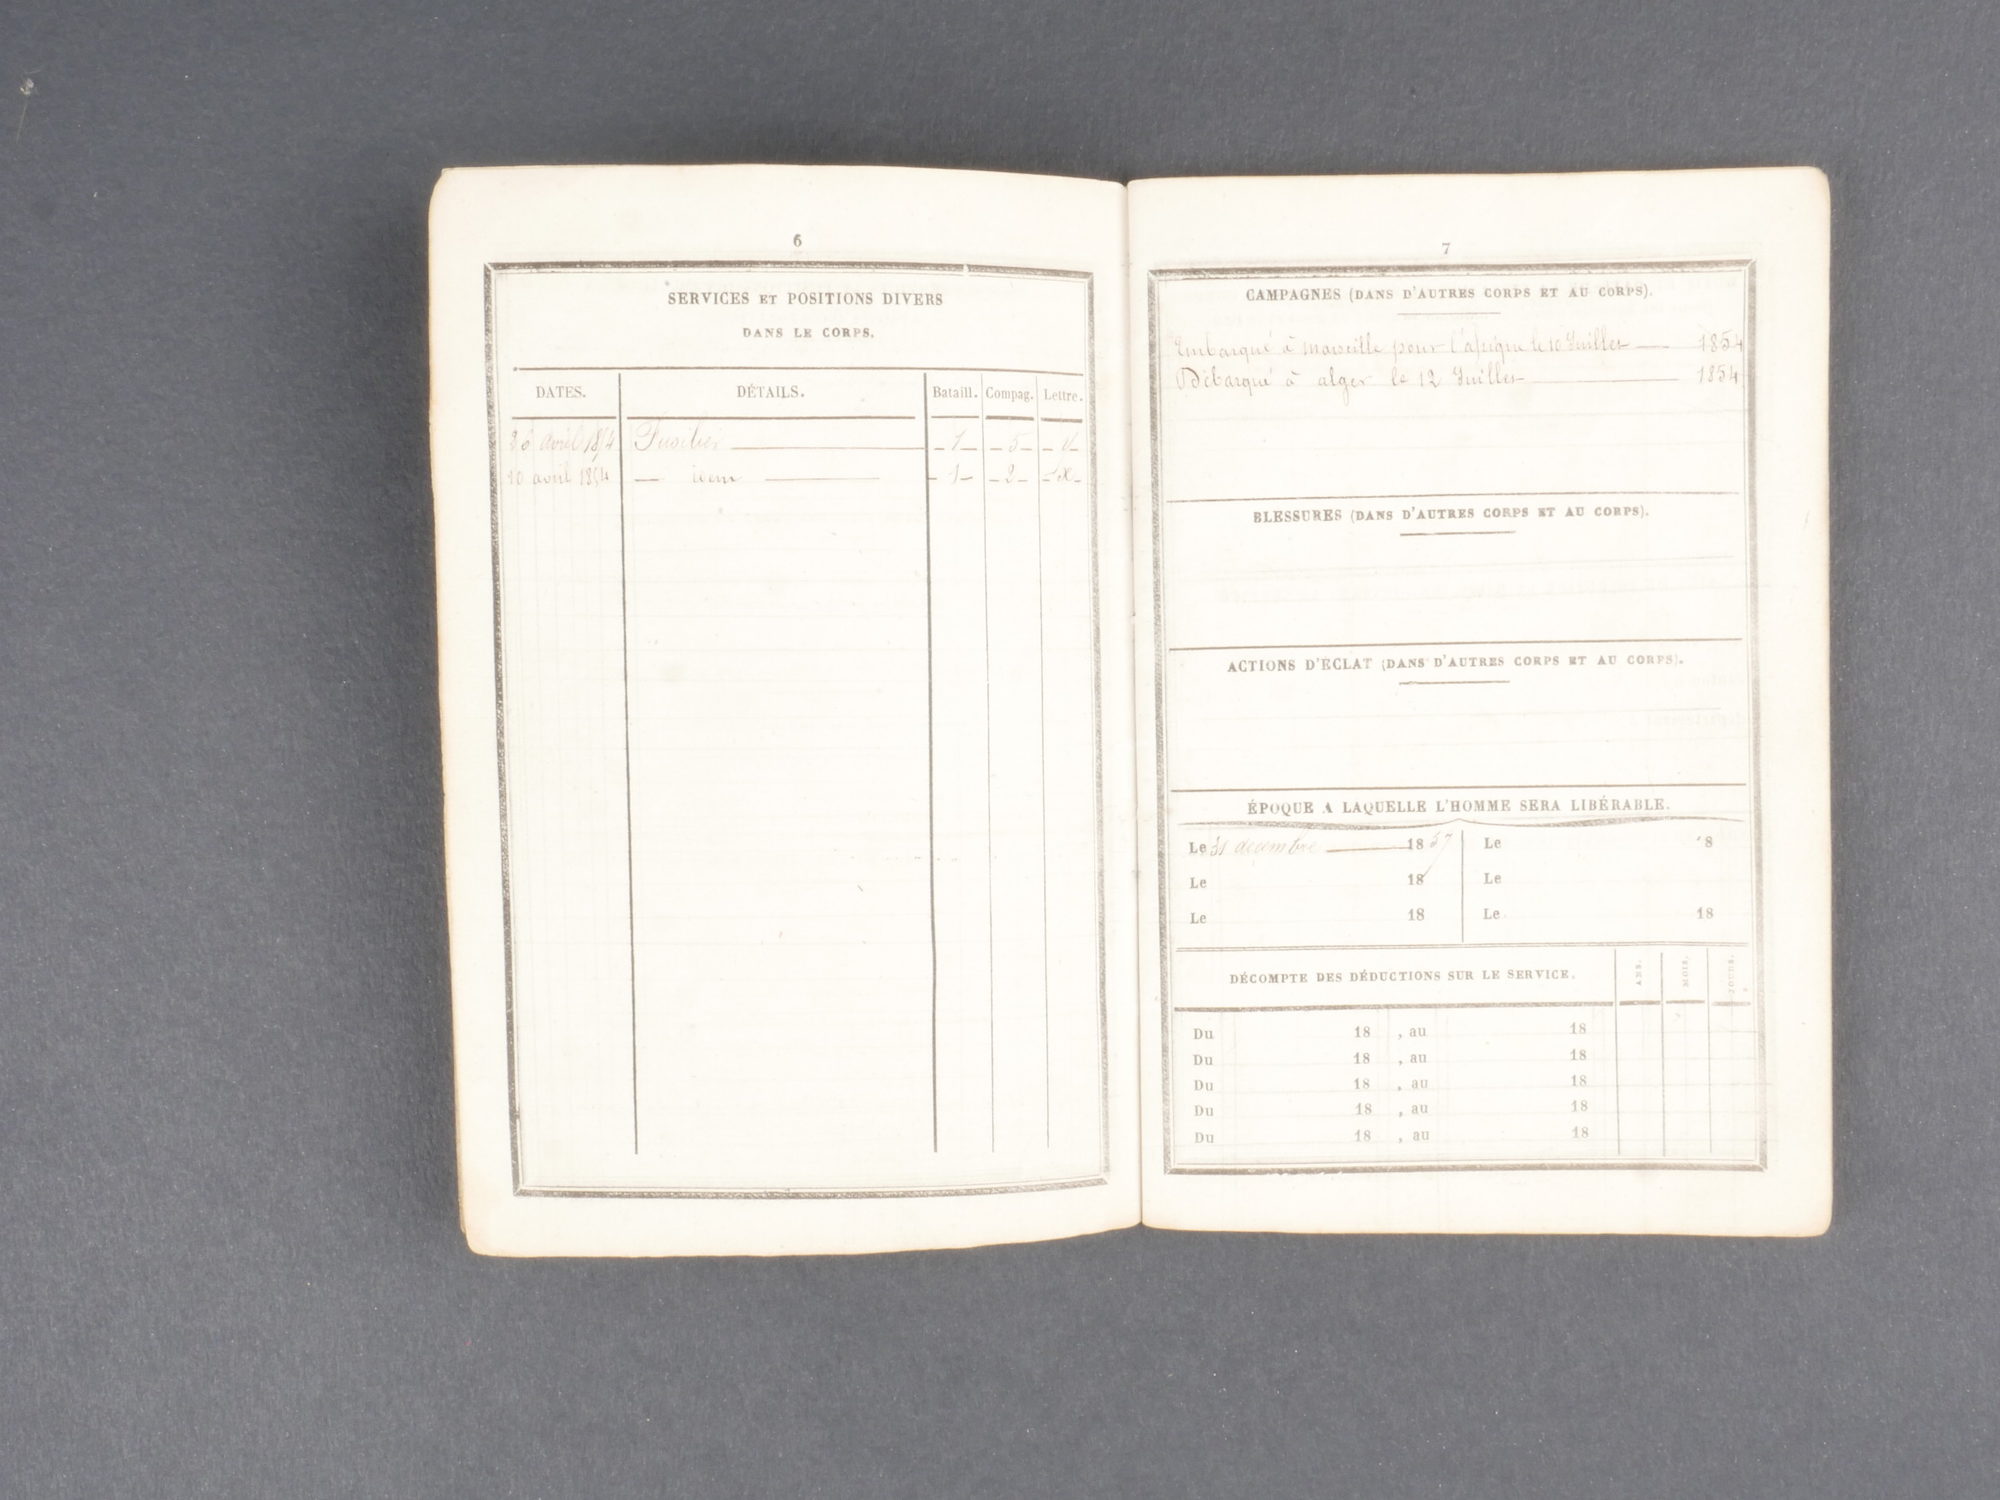 6
SERVICES ET POSITIONS DIVERS
DANS LE CORPS.
DATES. DÉTAILS. Bataill. Compag. Lettre.
26 avril 1854 Fusilier 1 5
10 avril 1854 idem 1 2
7
CAMPAGNES (DANS D'AUTRES CORPS ET AU CORPS).
Embarqué à marseille pour l'afrique le 10 Juillet 1854
Débarqué à alger le 12 Juillet 1854
BLESSURES (DANS D'AUTRES CORPS ET AU CORPS).
ACTIONS D'ÉCLAT (DANS D'AUTRES CORPS ET AU CORPS).
ÉPOQUE A LAQUELLE L'HOMME SERA LIBÉRABLE.
Le 31 décembre 1857 Le 18
Le 18 Le
Le 18 Le 18
DÉCOMPTE DES DÉDUCTIONS SUR LE SERVICE. ANS. MOIS. JOURS.
Du 18 , au 18
Du 18 , au 18
Du 18 , au 18
Du 18 , au 18
Du 18 , au 18